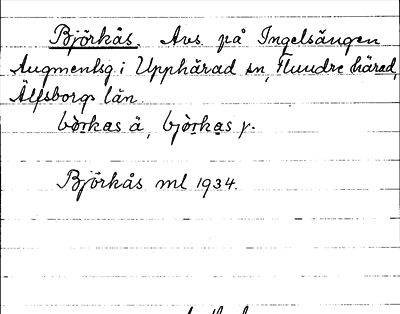 Björkås. Avs. på Ingelsängen
Augmentsg. i Upphärad sn, Flundre härad,
Älfsborgs län.
bo̱rkas ä, bjo̱rkas y.
Björkås ml 1934.